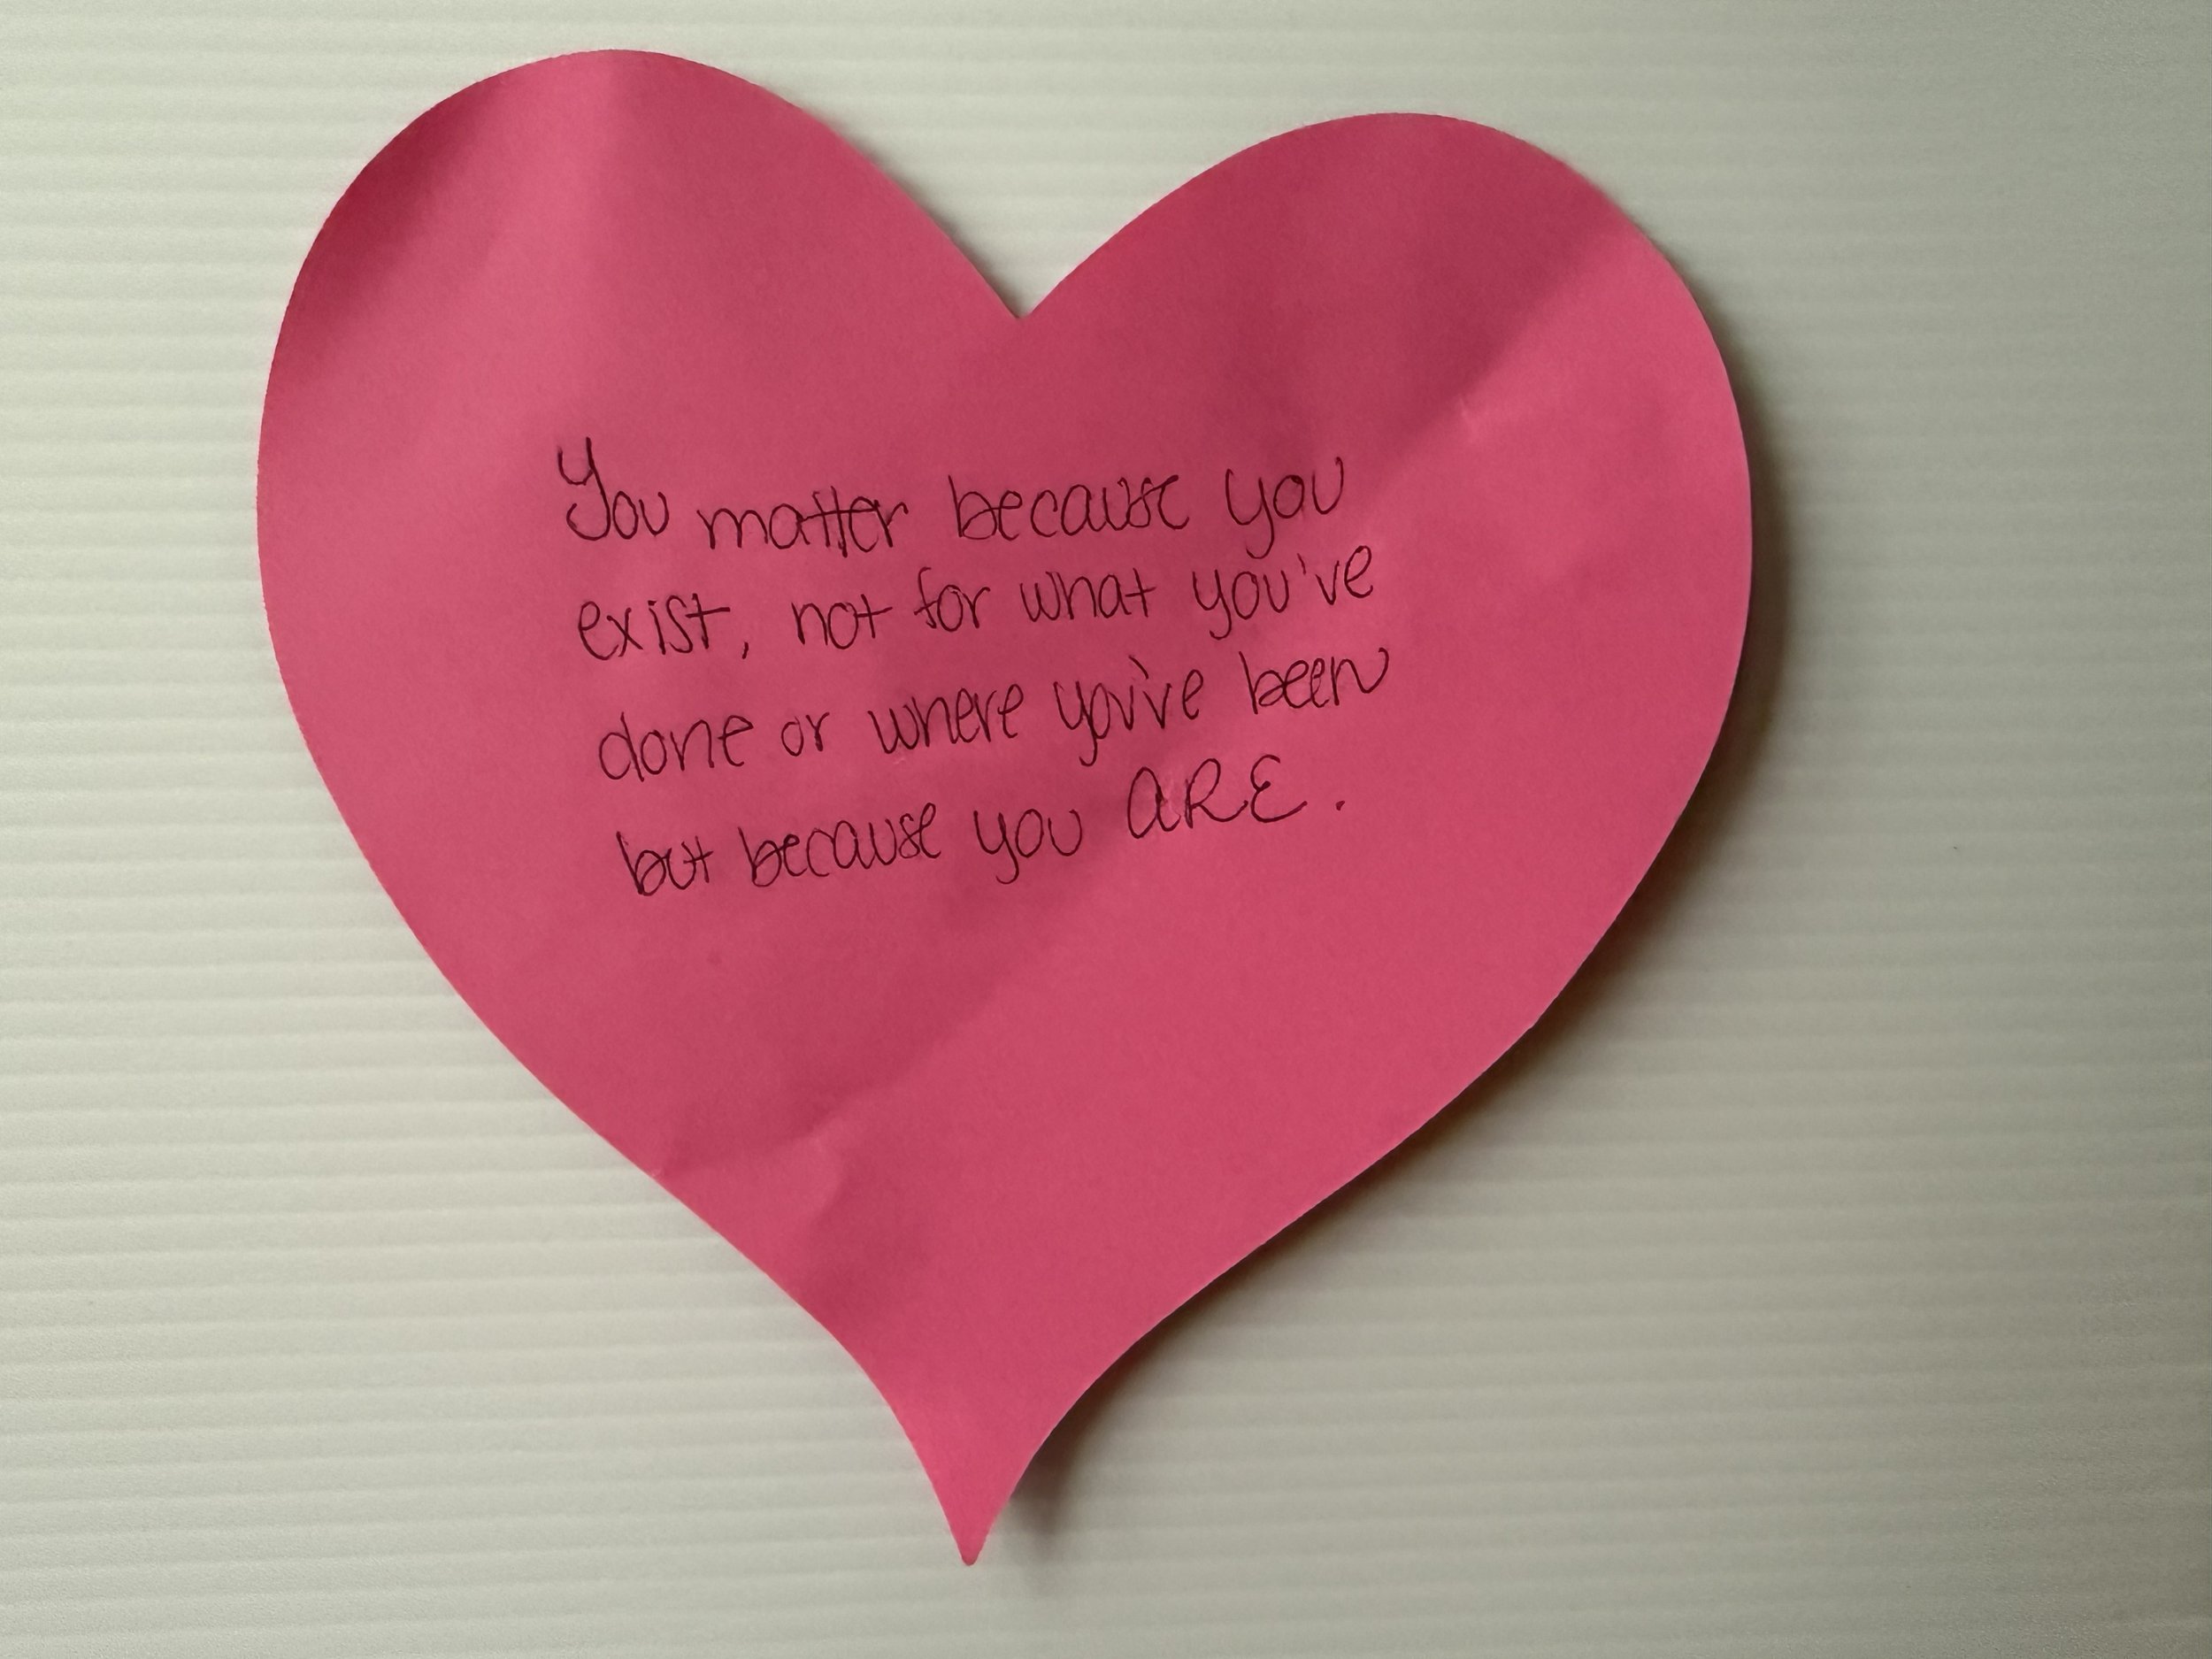 You matter because you
exist, not for what you've
done or where you've been
but because you ARE.